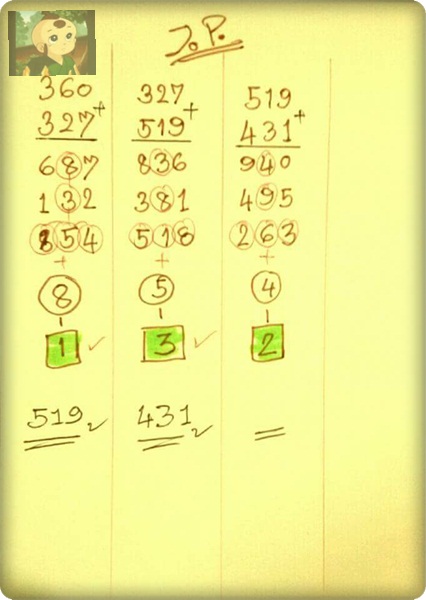 J.P.
360
327+
687
132
854
+
8
1 ✓
519 ✓
327
519+
836
381
518
+
5
3 ✓
431 ✓
519
431+
940
495
263
+
4
2